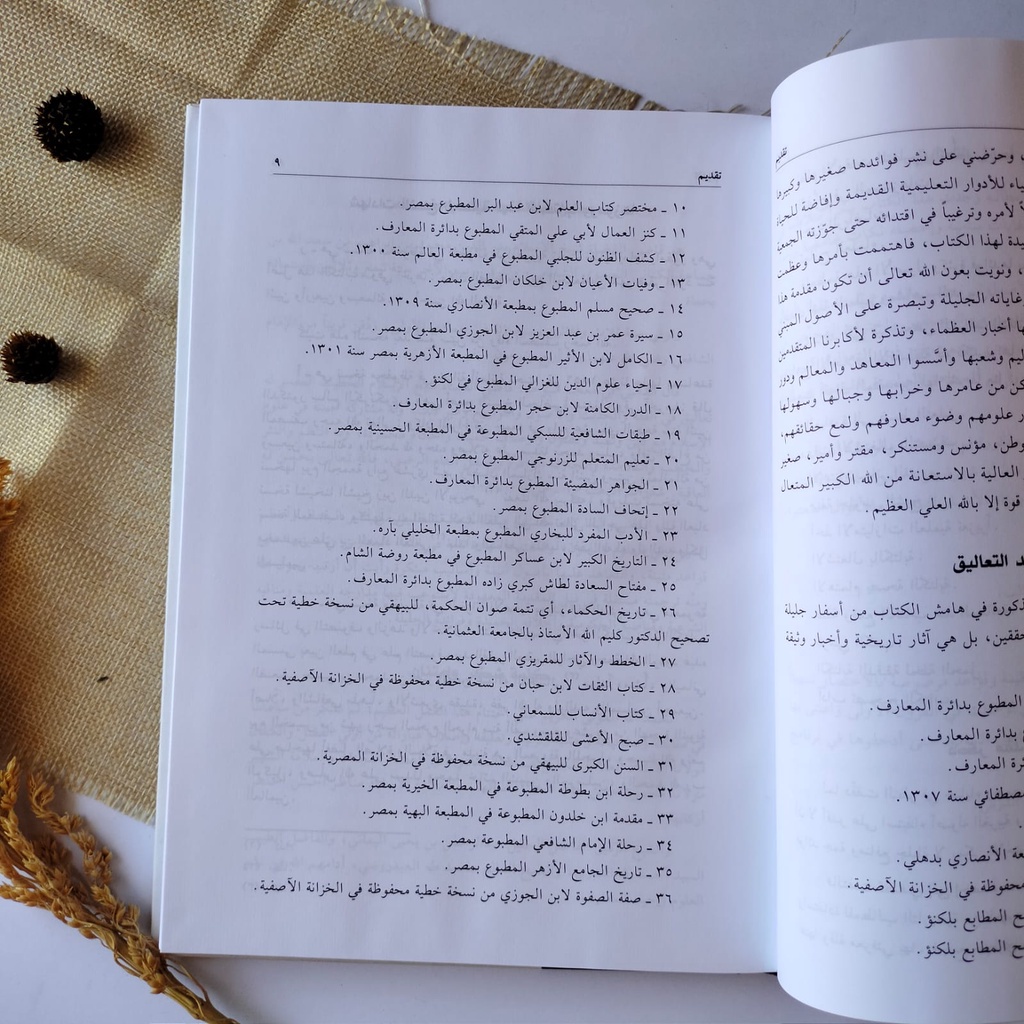 تقديم
، وحرّضني على نشر فوائدها صغيرها وكبيرها
ياء للأدوار التعليمية القديمة وإفاضة للحياة
ة لأمره وترغيباً في اقتدائه حتى جوّزته الجمعية
يدة لهذا الكتاب، فاهتممت بأمرها وعظمت
، ونويت بعون الله تعالى أن تكون مقدمة هذا
غاياته الجليلة وتبصرة على الأصول
ها أخبار العظماء، وتذكرة لأكابرنا المتقدمين
ليم وشعبها وأسَّسوا المعاهد والمعالم ودور
كن من عامرها وخرابها وجبالها وسهولها
ر علومهم وضوء معارفهم ولمع حقائقهم،
وطن، مؤنس ومستنكر، مقتر وأمير، صغير
العالية بالاستعانة من الله الكبير المتعال
قوة إلا بالله العلي العظيم.
د التعاليق
ذكورة في هامش الكتاب من أسفار جليلة
حققين، بل هي آثار تاريخية وأخبار وثيقة
المطبوع بدائرة المعارف.
ع بدائرة المعارف.
ئرة المعارف.
مصطفائي سنة ١٣٠٧.
عة الأنصاري بدهلي.
محفوظة في الخزانة الآصفية.
ح المطابع بلكنؤ.
ح المطابع بلكنؤ.
تقديم ٩
١٠ ـ مختصر كتاب العلم لابن عبد البر المطبوع بمصر.
١١ ـ كنز العمال لأبي علي المتقي المطبوع بدائرة المعارف.
١٢ ـ كشف الظنون للجلبي المطبوع في مطبعة العالم سنة ١٣٠٠.
١٣ ـ وفيات الأعيان لابن خلكان المطبوع بمصر.
١٤ ـ صحيح مسلم المطبوع بمطبعة الأنصاري سنة ١٣٠٩.
١٥ ـ سيرة عمر بن عبد العزيز لابن الجوزي المطبوع بمصر.
١٦ ـ الكامل لابن الأثير المطبوع في المطبعة الأزهرية بمصر سنة ١٣٠١.
١٧ ـ إحياء علوم الدين للغزالي المطبوع في لكنؤ.
١٨ ـ الدرر الكامنة لابن حجر المطبوع بدائرة المعارف.
١٩ ـ طبقات الشافعية للسبكي المطبوعة في المطبعة الحسينية بمصر.
٢٠ ـ تعليم المتعلم للزرنوجي المطبوع بمصر.
٢١ ـ الجواهر المضيئة المطبوع بدائرة المعارف.
٢٢ ـ إتحاف السادة المطبوع بمصر.
٢٣ ـ الأدب المفرد للبخاري المطبوع بمطبعة الخليلي بآره.
٢٤ ـ التاريخ الكبير لابن عساكر المطبوع في مطبعة روضة الشام.
٢٥ ـ مفتاح السعادة لطاش كبري زاده المطبوع بدائرة المعارف.
٢٦ ـ تاريخ الحكماء، أي تتمة صوان الحكمة، للبيهقي من نسخة خطية تحت
تصحيح الدكتور كليم الله الأستاذ بالجامعة العثمانية.
٢٧ ـ الخطط والآثار للمقريزي المطبوع بمصر.
٢٨ ـ كتاب الثقات لابن حبان من نسخة خطية محفوظة في الخزانة الآصفية.
٢٩ ـ كتاب الأنساب للسمعاني.
٣٠ ـ صبح الأعشى للقلقشندي.
٣١ ـ السنن الكبرى للبيهقي من نسخة محفوظة في الخزانة المصرية.
٣٢ ـ رحلة ابن بطوطة المطبوعة في المطبعة الخيرية بمصر.
٣٣ ـ مقدمة ابن خلدون المطبوعة في المطبعة البهية بمصر.
٣٤ ـ رحلة الإمام الشافعي المطبوعة بمصر.
٣٥ ـ تاريخ الجامع الأزهر المطبوع بمصر.
٣٦ ـ صفة الصفوة لابن الجوزي من نسخة خطية محفوظة في الخزانة الآصفية.